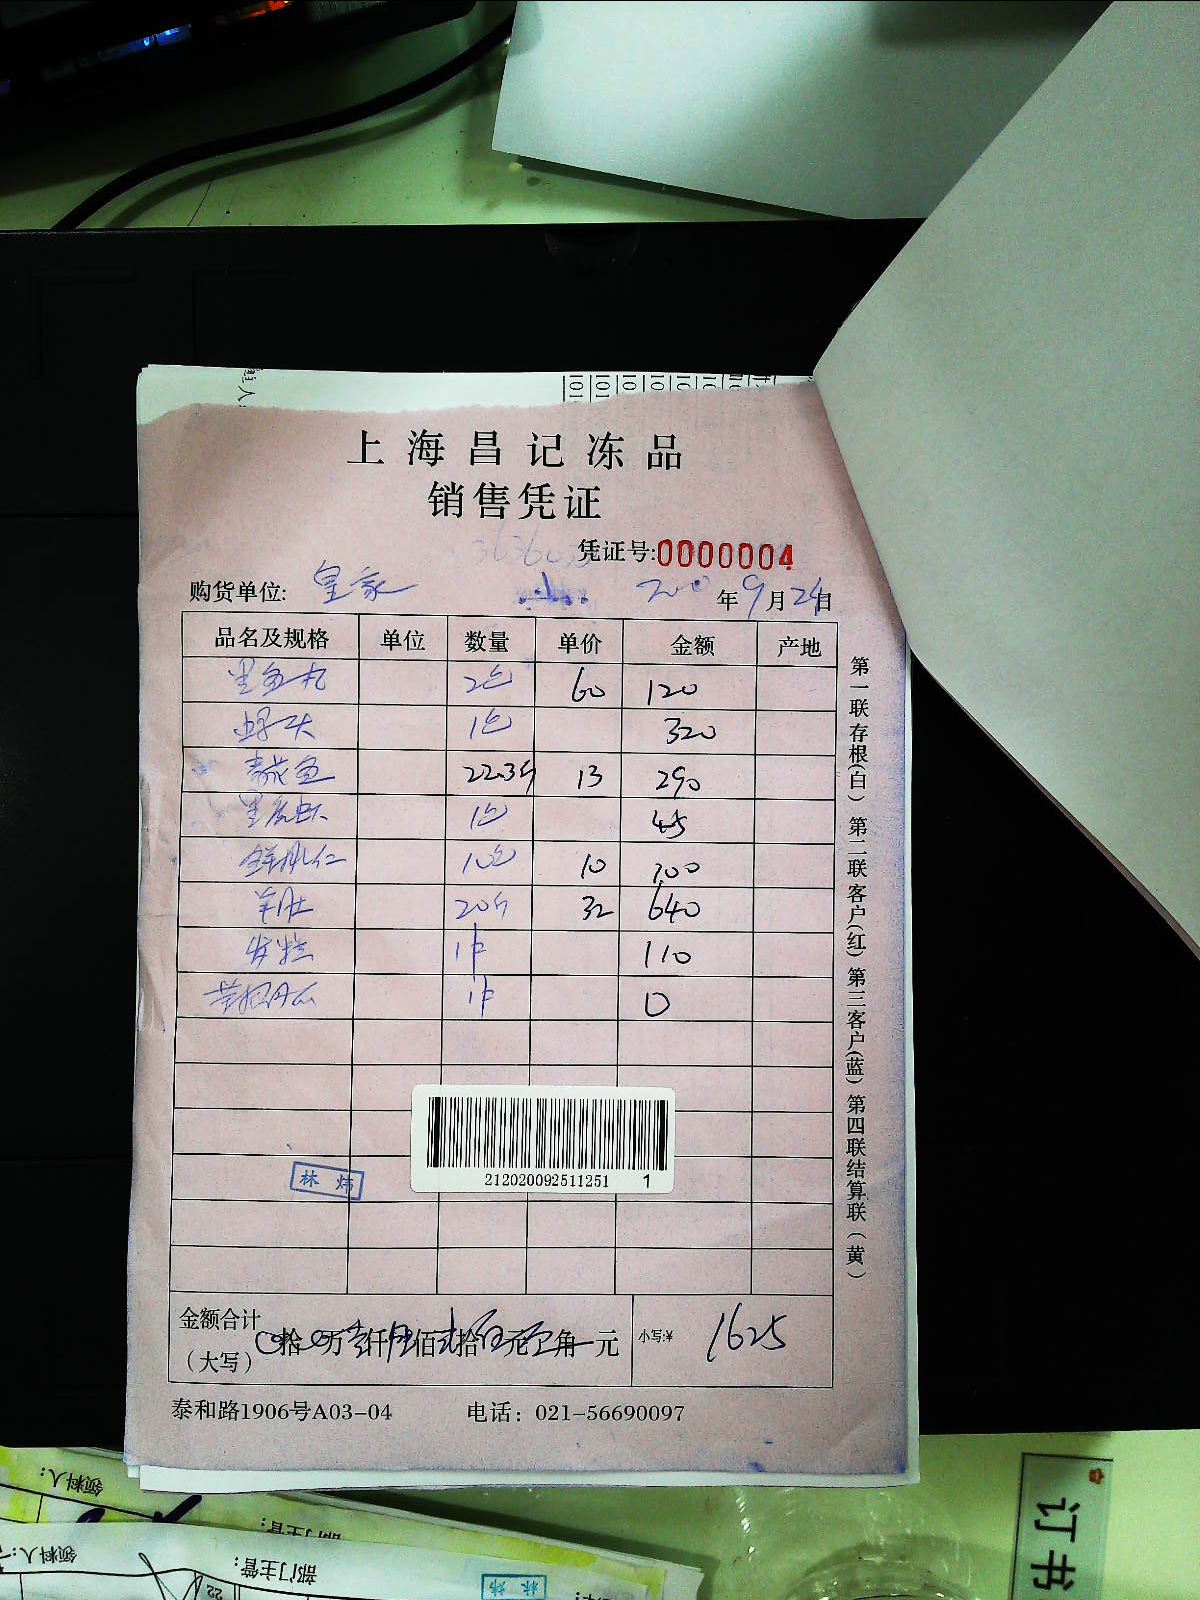 上海昌记冻品
销售凭证
凭证号:0000004
购货单位: 皇家 年9月24日
品名及规格 单位 数量 单价 金额 产地
黑鱼片 2包 60 120
虾子大 1包 320
青花鱼 22.3斤 13 290
黑虎虾 1包 45
鲜桃仁 10包 10 100
羊肚 20斤 32 640
1件 110
1件 0
212020092511251 1
林 炜
金额合计
(大写) 0拾0万壹仟陆佰贰拾伍元零角 元 小写:¥ 1625
泰和路1906号A03-04 电话: 021-56690097
第一联存根(白) 第二联客户(红) 第三客户(蓝) 第四联结算联(黄)
领料人:
部门主管:
领料人:
部门主管:
22
林 炜
订书